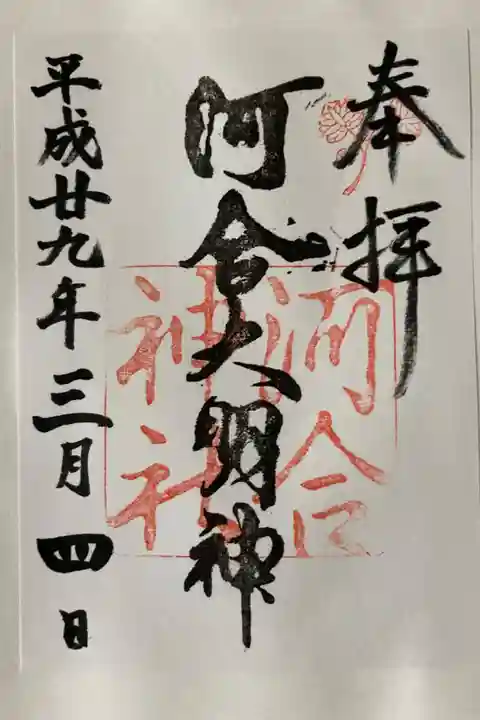 奉拝
河合大明神
河合
神社
平成廿九年三月四日